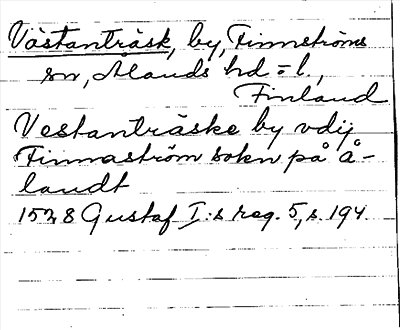 Västanträsk, by, Finnströms
sn, Ålands hd = l,
Finland
Vestanträske by vdij
Finnaström sokn på å-
landt
1528 Gustaf I:s reg. 5, s. 194